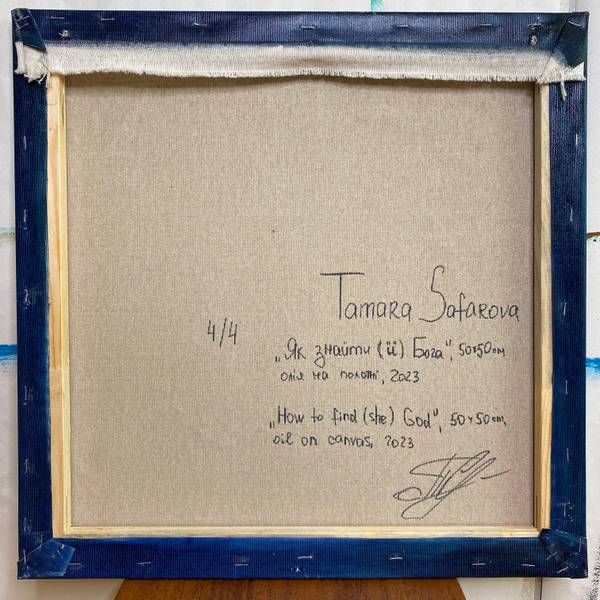 Tamara Safarova
4/4
„Як знайти (її) Бога", 50x50см
олія на полотні, 2023
„How to find (she) God", 50x50cm,
oil on canvas, 2023